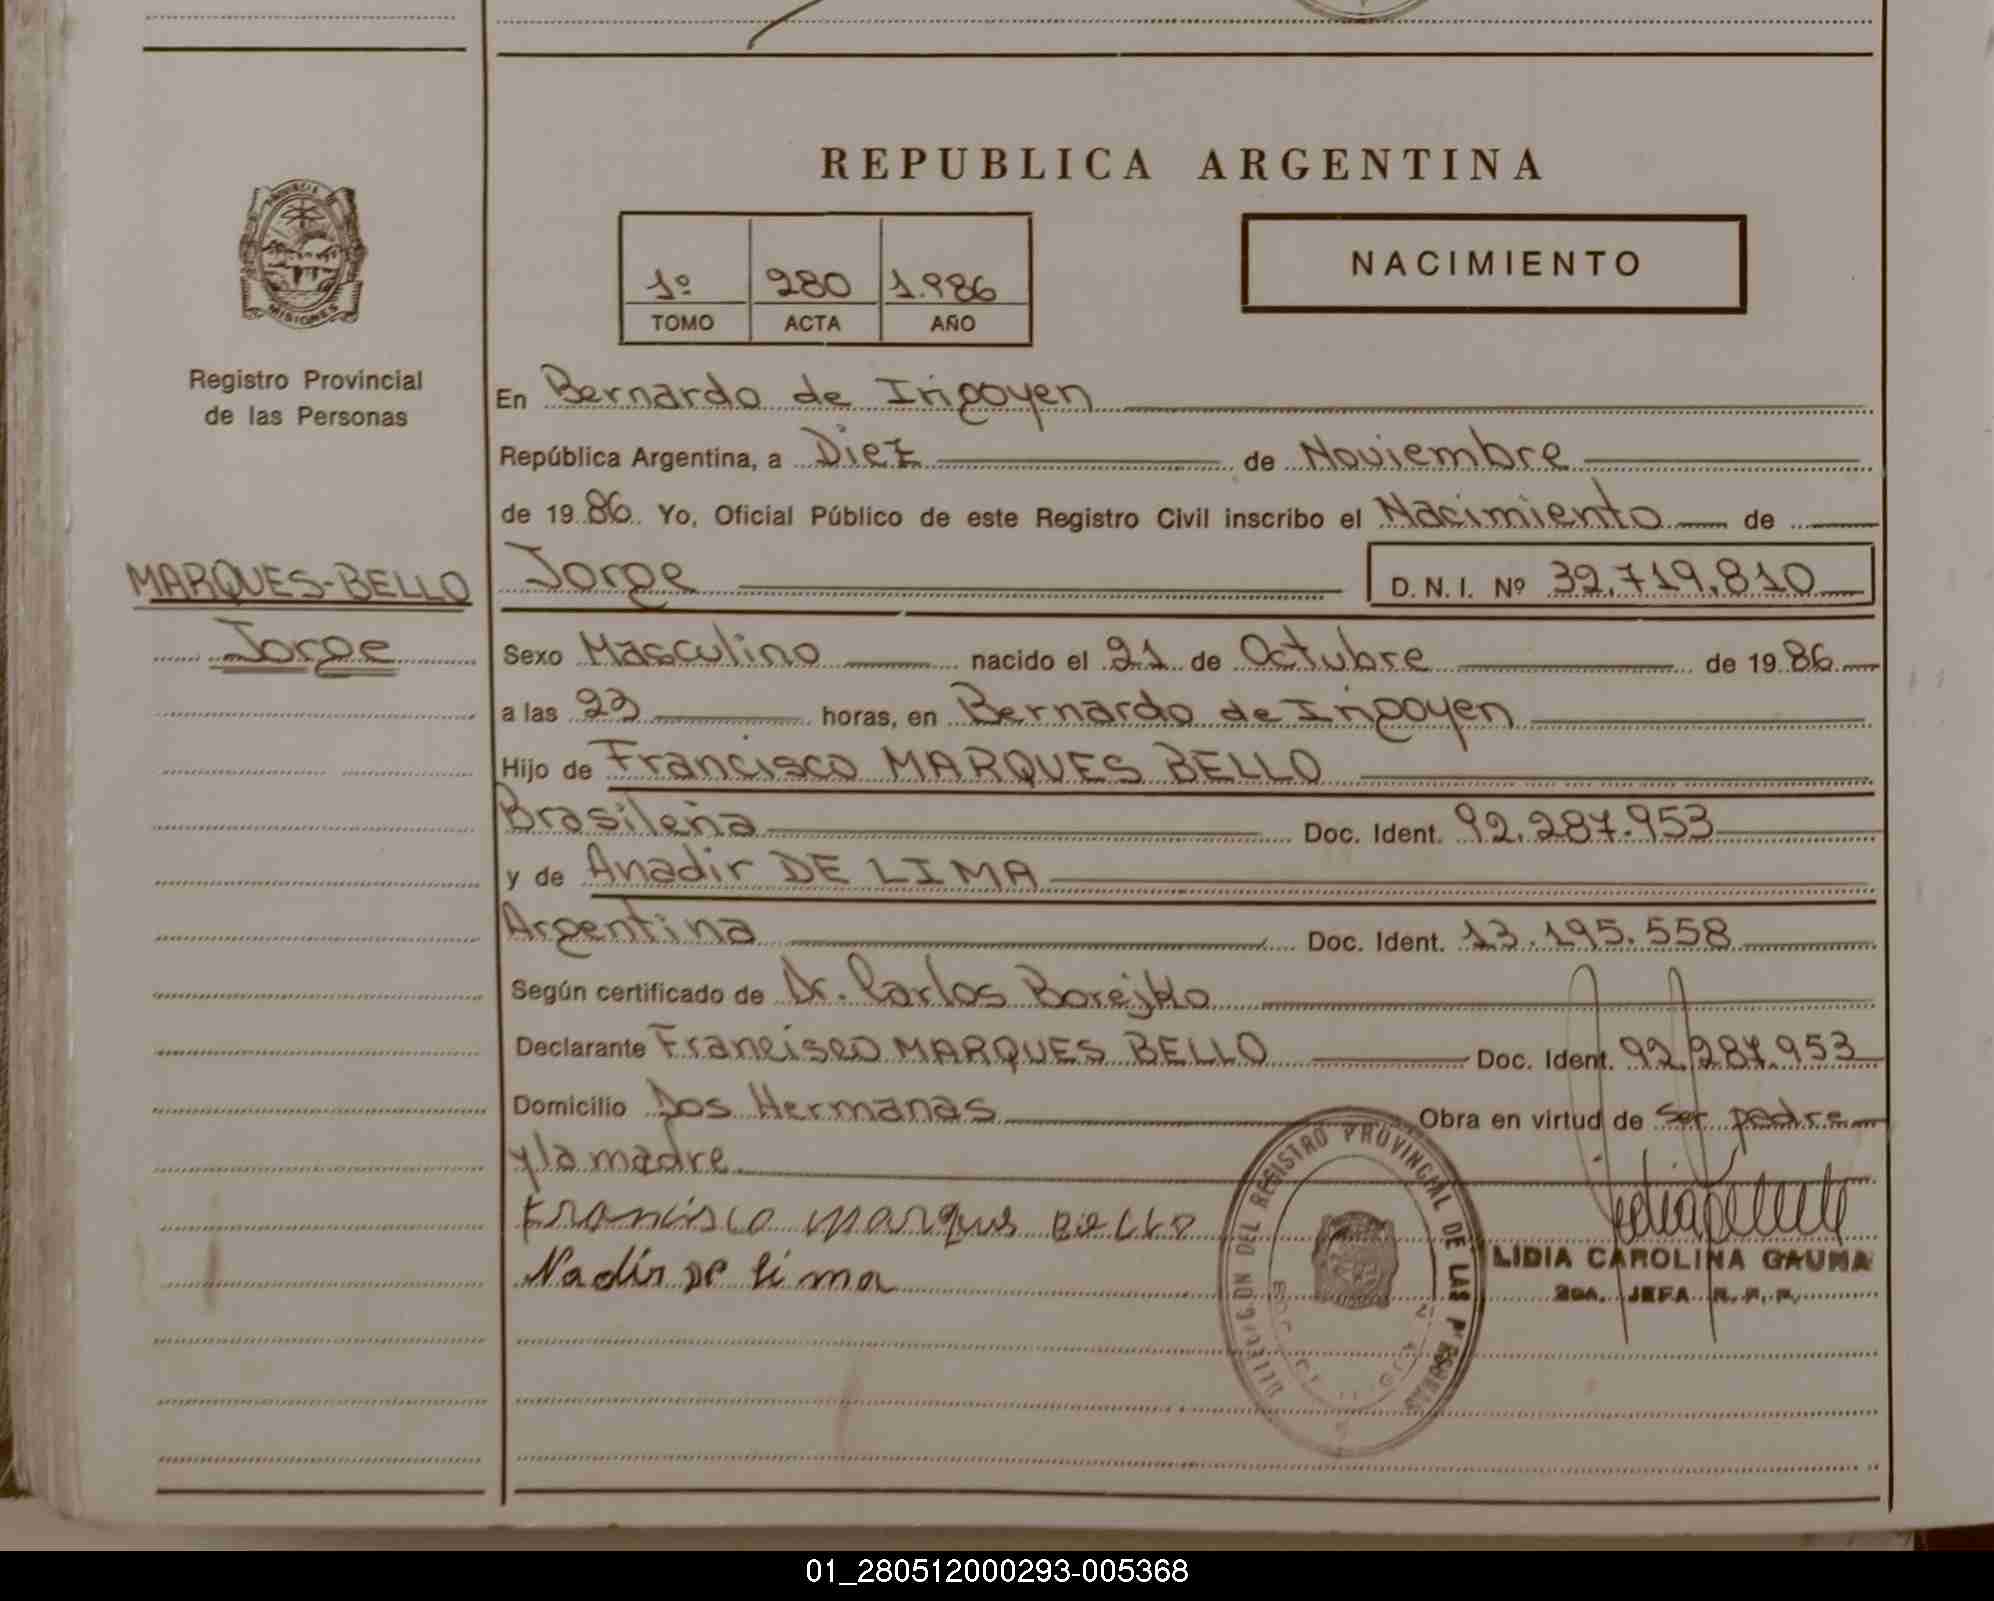 REPUBLICA ARGENTINA
PROVINCIA DE
MISIONES
Registro Provincial
de las Personas
1º 280 1.986
TOMO ACTA AÑO
NACIMIENTO
En Bernardo de Irigoyen
República Argentina, a Diez de Noviembre
de 1986 Yo, Oficial Público de este Registro Civil inscribo el Nacimiento de
MARQUES-BELLO
Jorge
Jorge D.N.I. Nº 32.719.810
Sexo Masculino nacido el 21 de Octubre de 1986
a las 23 horas, en Bernardo de Irigoyen
Hijo de Francisco MARQUES BELLO
Brasileña Doc. Ident. 92.287.953
y de Anadir DE LIMA
Argentina Doc. Ident. 13.195.558
Según certificado de Dr. Carlos Borejko
Declarante Francisco MARQUES BELLO Doc. Ident. 92.287.953
Domicilio Dos Hermanas Obra en virtud de ser padre
y la madre
Francisco Marques Bello
Nadir de lima
DEL REGISTRO PROVINCIAL DE LAS PERSONAS
LIDIA CAROLINA GAUNA
2DA. JEFA R. P. P.
01_280512000293-005368